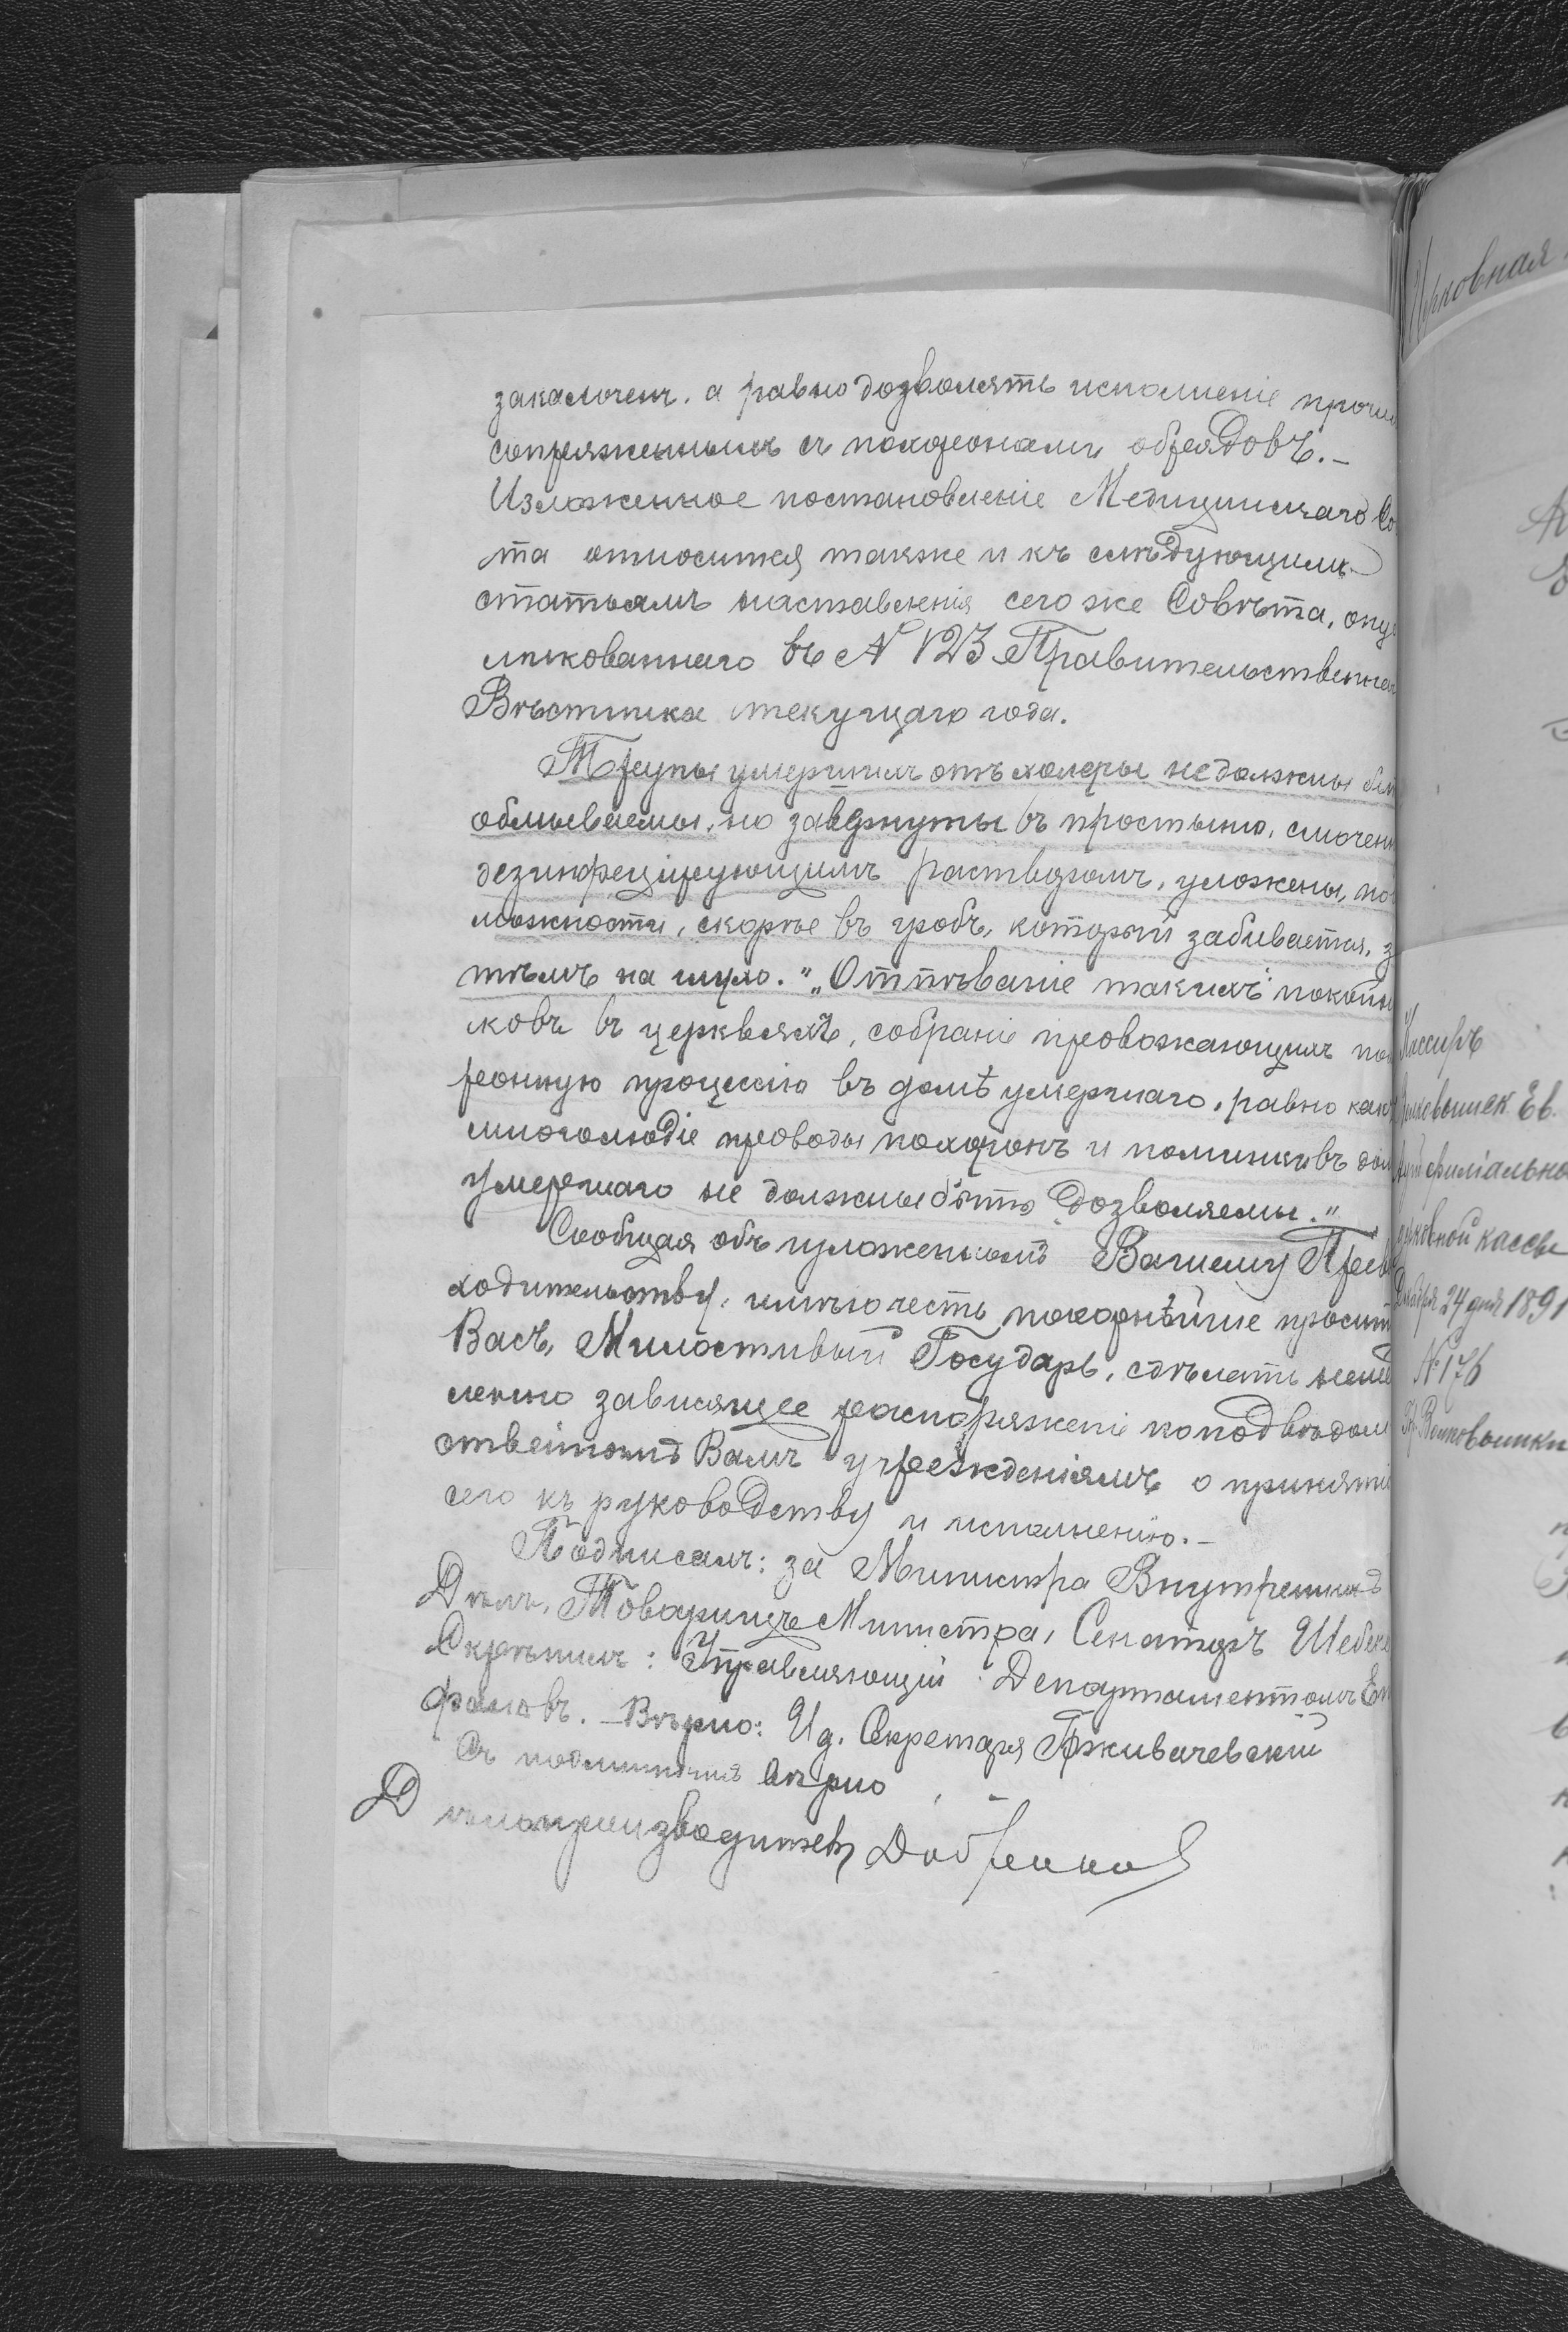 заключенъ, а равно дозволять исполненіе прочи
сопряженныхъ съ похоронами обрядовъ.–
Изложенное постановленіе Медицинскаго Со
та относится также и къ слѣдующимъ
статьямъ наставленія сего же Совѣта, опуб
ликованнаго въ № 123 Правительственна
Вѣстника текущаго года.
Трупы умершихъ отъ холеры не должны бы
обмываемы, но завернуты въ простыню, смочен
дезинфецирующимъ растворомъ, уложены, по
можности, скорѣе въ гробъ, который забивается, з
тѣмъ на глухо." „Отпѣваніе такихъ покойн
ковъ въ церквяхъ, собраніе провожающихъ пох
ронную процессію въ домѣ умершаго, равно какъ
многолюдіе проводы похоронъ и поминки въ дом
умершаго не должны быть дозволяемы."
Сообщая объ изложенномъ Вашему Прево
ходительству, имѣю честь покорнѣйше просит
Васъ, Милостивый Государь, сдѣлать немед
ленно зависящее распоряженіе по подвѣдом
ственнымъ Вамъ учрежденіямъ о принятіи
сего къ руководству и исполненію.–
Подписалъ: за Министра Внутреннихъ
Дѣлъ, Товарищъ Министра, Сенаторъ Шебеко
Скрѣпилъ: Управляющій Департаментомъ Еп
фановъ. – Вѣрно: И д. Секретаря Пживачевскій
Съ подлиннымъ вѣрно
Дѣлопроизводитель
Церковная
Кассиръ
Ев.
филіально
церковной кассы
Декабря 24 дня 1891
№ 176